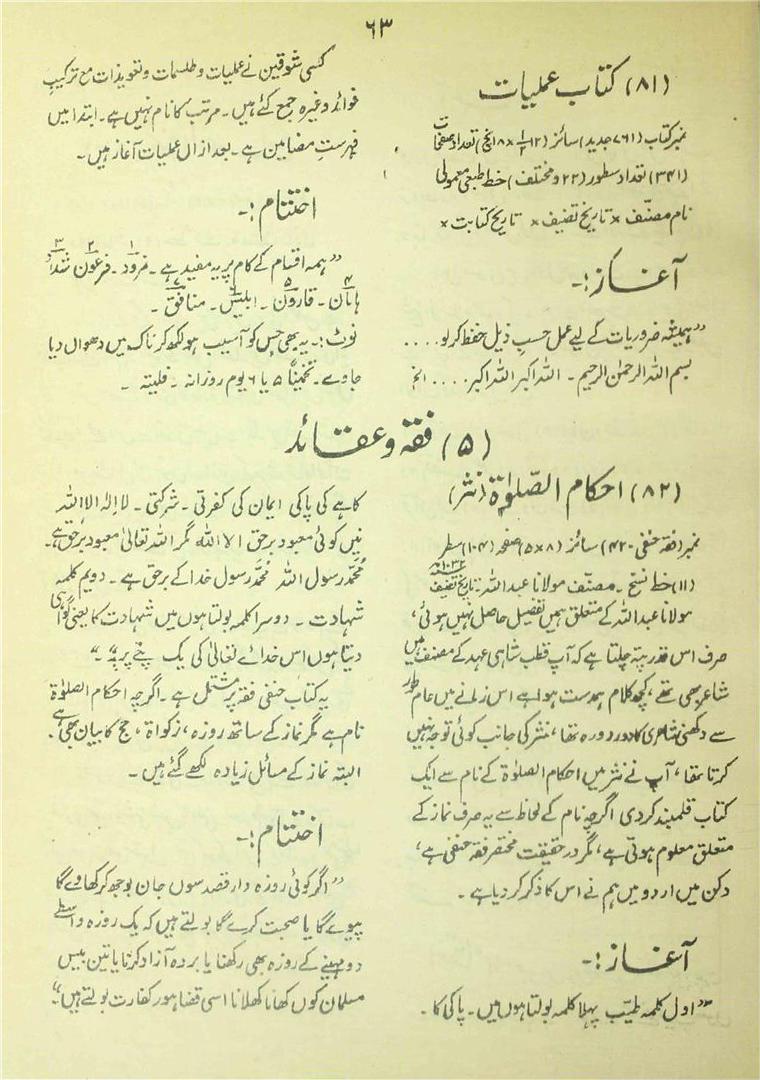 ۶۳
(۸۱) کتاب عملیات
نمبر کتاب (۷۶۱ جدید) سائز (۱۲ × ۸ ۱/۲ انچ) تعداد صفحات
(۳۴۱) تعداد سطور (۲۲ و مختلف) خط طبعی معمولی
نام مصنّف × تاریخ تصنیف × تاریخ کتابت ×
آغاز :۔
"ہمیشہ ضروریات کے لیے عمل حسبِ ذیل حفظ کر لو ....
بسم اللہ الرحمٰن الرحیم ۔ اللہ اکبر اللہ اکبر .... الخ
کسی شوقین نے عملیات و طلسمات و تعویذات مع ترکیبِ
فوائد وغیرہ جمع کئے ہیں ۔ مرتب کا نام نہیں ہے ۔ ابتدا میں
فہرستِ مضامین ہے ۔ بعد ازاں عملیات آغاز ہیں ۔
اختتام :۔
"ہمہ اقسام کے کام پر یہ مفید ہے ۔ نمرود ۔ فرعون شداد
ہامان ۔ قارون ۔ ابلیس ۔ منافق ۔
نوٹ :۔ یہ بھی جس کو آسیب ہو لکھ کر ناک میں دھواں دیا
جاوے ۔ تخمیناً ۵ یا ۶ یوم روزانہ ۔ فلیتہ ۔
(۵) فقہ و عقائد
(۸۲) احکام الصّلوٰۃ (نثر)
نمبر (فقہ حنفی ۔ ۴۲۰) سائز (۸ × ۵) صفحہ (۱۰۴) سطر
(۱۱) خط نسخ ۔ مصنّف مولانا عبداللہ ۔ تاریخ تصنیف ۱۰۳۲ھ
مولانا عبداللہ کے متعلق ہمیں تفصیل حاصل نہیں ہوئی،
صرف اس قدر پتہ چلتا ہے کہ آپ قطب شاہی عہد کے مصنف ہیں
شاعر بھی تھے، کچھ کلام ہمدست ہوا ہے اس زمانے میں عام طور
سے دکھنی شاعری کا دور دورہ تھا، نثر کی جانب کوئی توجہ نہیں
کرتا تھا، آپ نے نثر میں احکام الصلوٰۃ کے نام سے ایک
کتاب قلمبند کر دی اگرچہ نام کے لحاظ سے یہ صرف نماز کے
متعلق معلوم ہوتی ہے، مگر در حقیقت مختصر فقہ حنفی ہے،
دکن میں اردو میں ہم نے اس کا ذکر کر دیا ہے ۔
آغاز :۔
"اول کلمہ طیّب پہلا کلمہ بولتا ہوں میں ۔ پاکی کا ۔
کاہے کی پاکی ایمان کی کفرتی ۔ شرکتی ۔ لا الہ الا اللہ
نیں کوئی معبود برحق الا اللہ مگر اللہ تعالیٰ معبود برحق ہے ۔
مُحمّد رسول اللہ مُحمّد رسول خدا کے برحق ہے ۔ دویم کلمہ
شہادت ۔ دوسرا کلمہ بولتا ہوں میں شہادت کا یعنی گواہی
دیتا ہوں اس خدائے تعالیٰ کی یک پنے پر ۔"
یہ کتاب حنفی فقہ پر مشتمل ہے ۔ اگرچہ احکام الصلوٰۃ
نام ہے مگر نماز کے ساتھ روزہ، زکوٰۃ، حج کا بیان بھی ہے ۔
البتہ نماز کے مسائل زیادہ لکھے گئے ہیں ۔
اختتام :۔
"اگر کوئی روزہ دار قصد سوں جان بوجھ کر کھاوے گا
پیوے گا یا صحبت کرے گا بولتے ہیں کہ یک روزہ واسطے
دو مہینے کے روزہ بھی رکھنا یا بردہ آزاد کرنا یا تین بیس
مسلمان کوں کھانا کھلانا اسی قضا ہور کفارت بولتے ہیں"